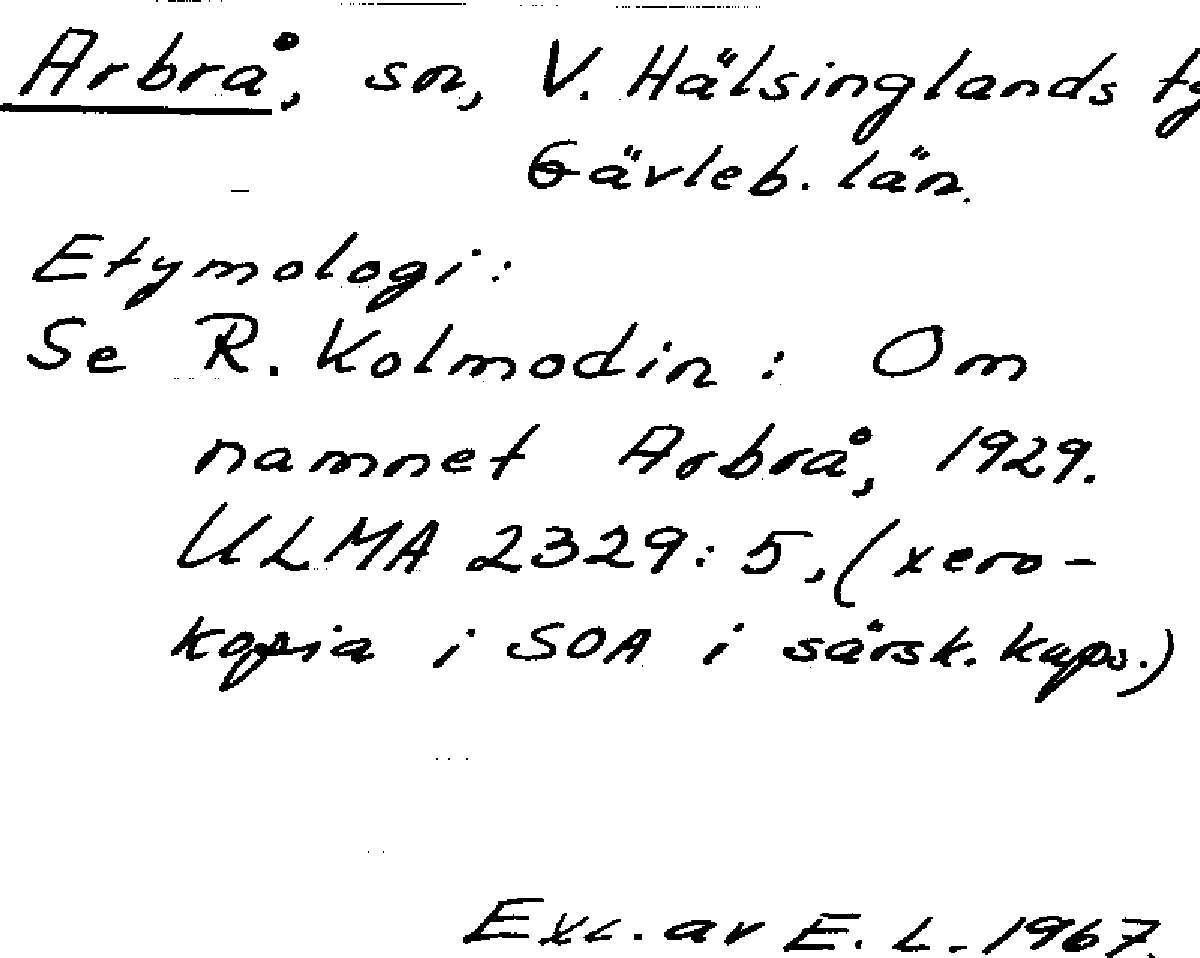 Arbrå, sn, V. Hälsinglands
Gävleb. län.
Etymologi:
Se R. Kolmodin: Om
namnet Arbrå, 1929.
ULMA 2329:5, (xero-
kopia i SOA i särsk. kaps.)
Exc. av E. L. 1967.